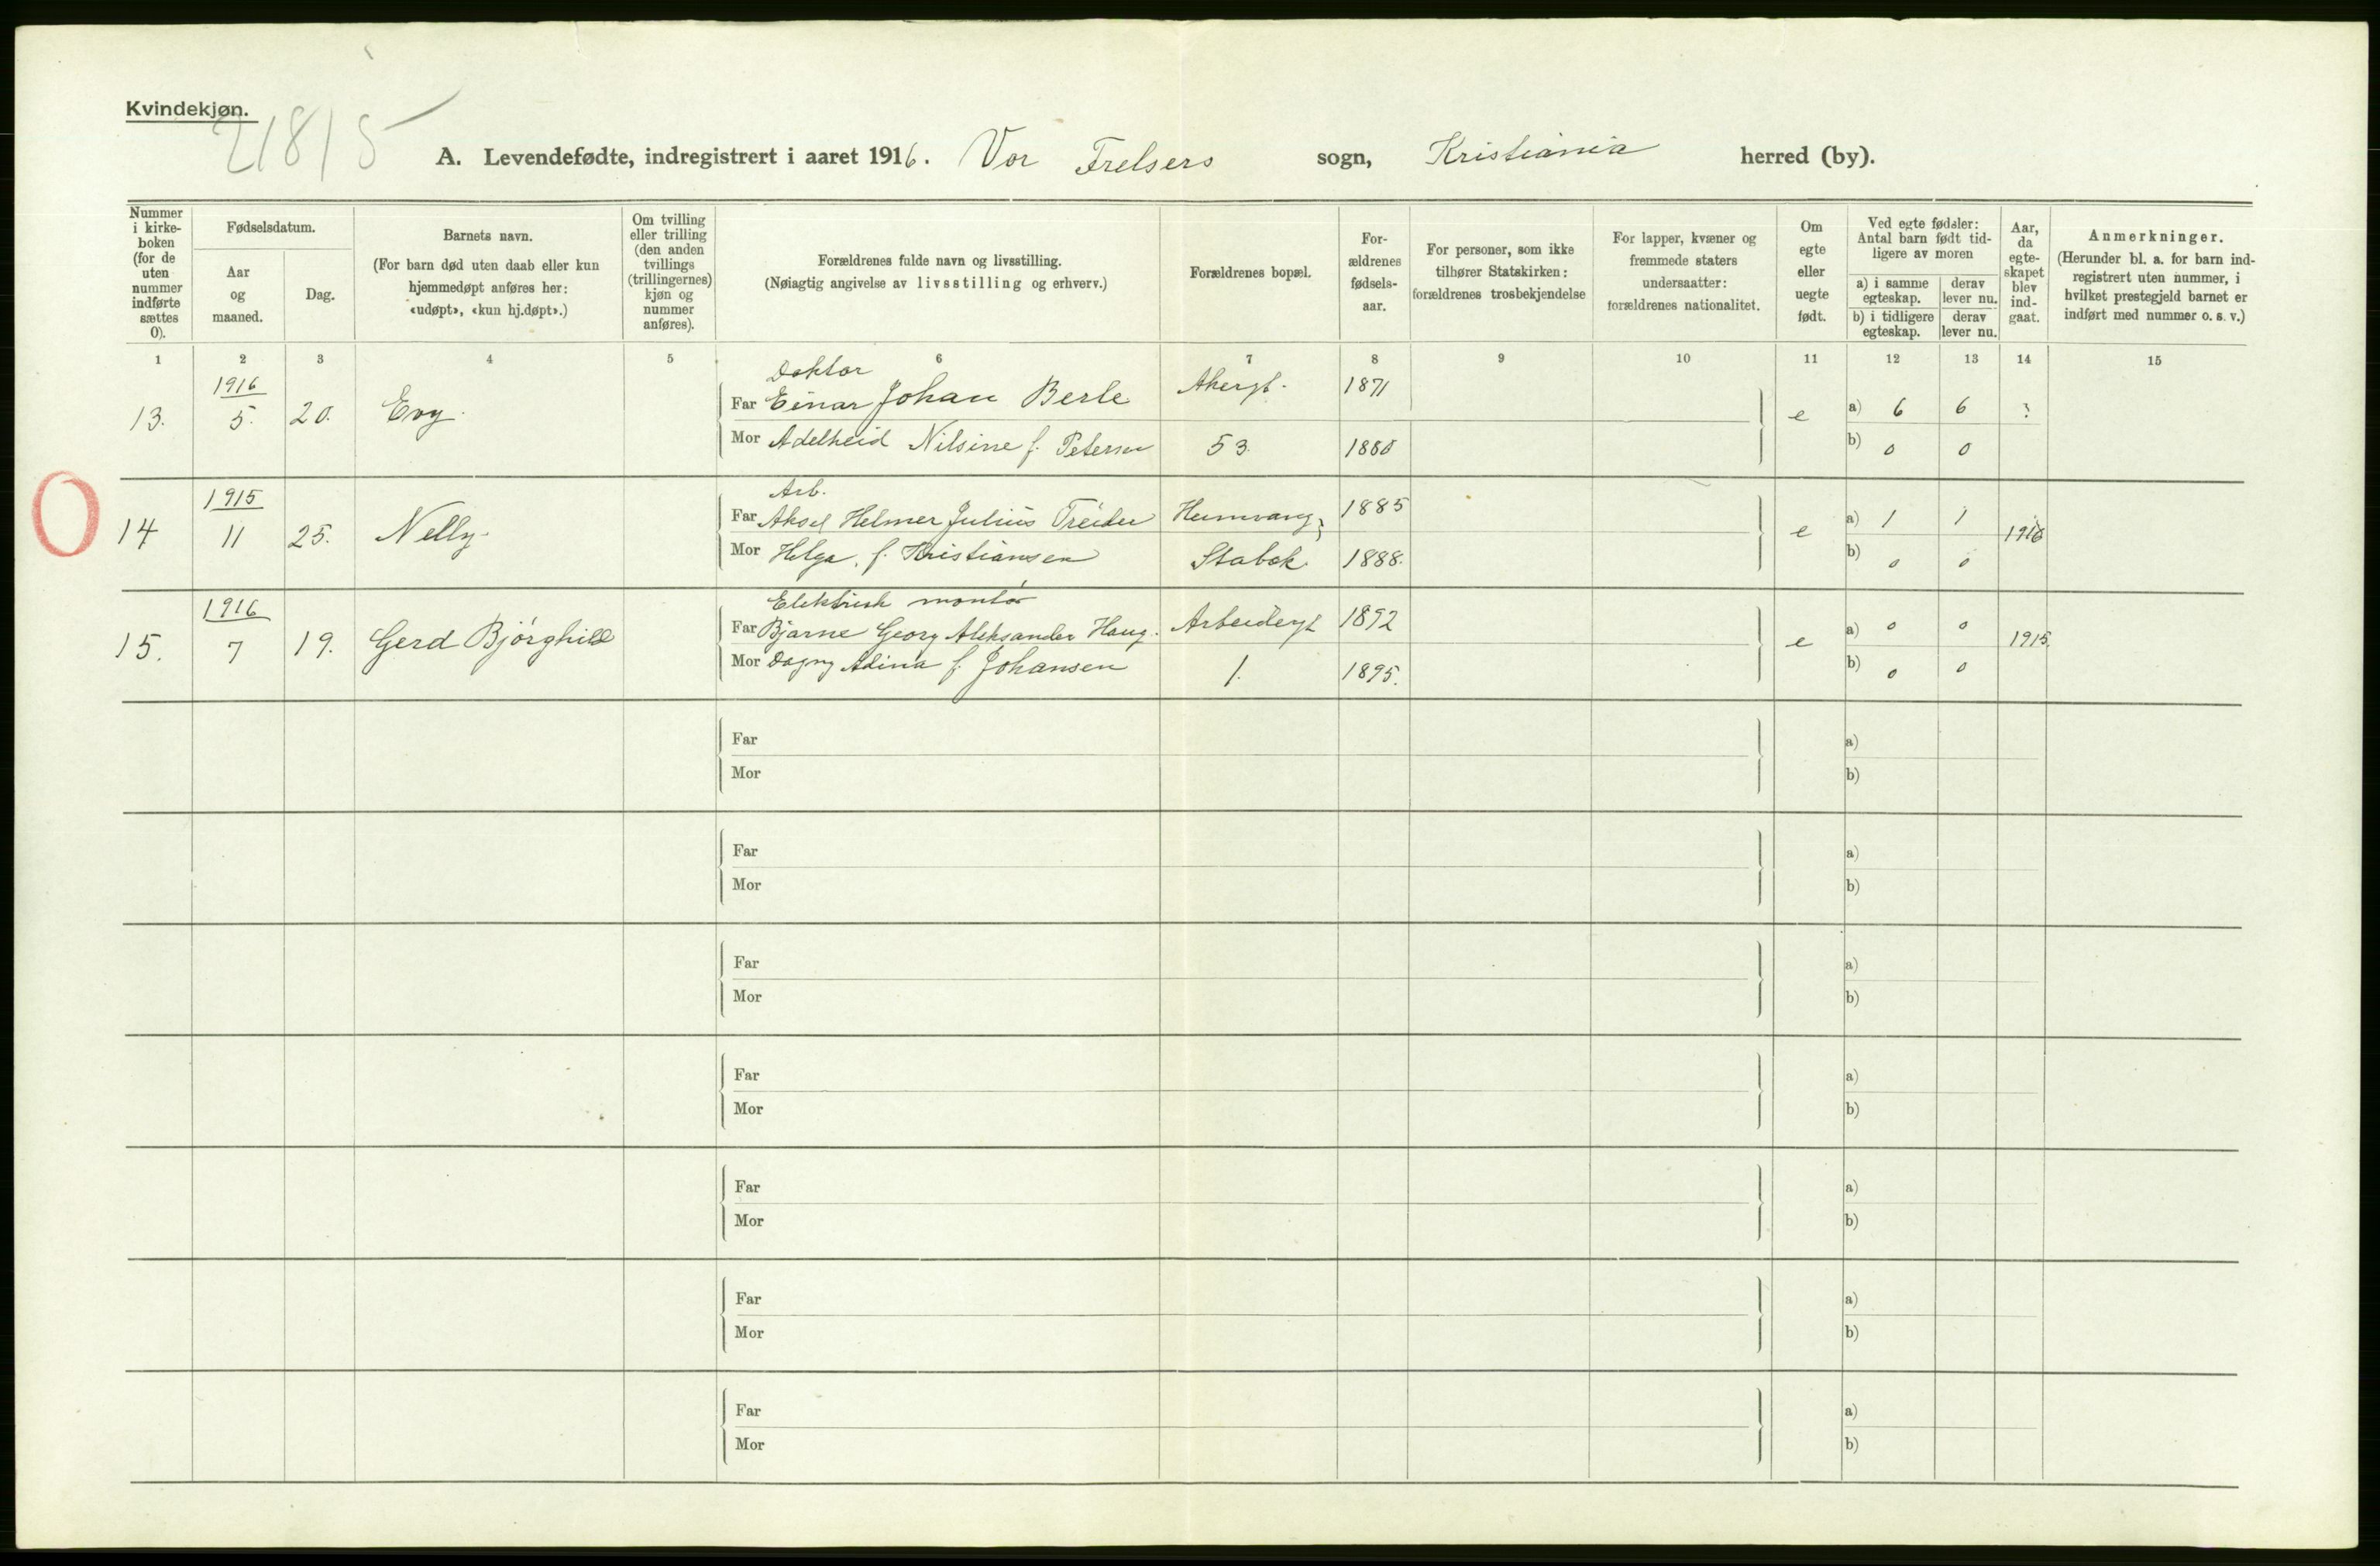 Kvindekjøn.
21815
A. Levendefødte, indregistrert i aaret 1916. Vor Frelsers sogn, Kristiania herred (by).
Nummer i kirke-boken (for de uten nummer indførte sættes 0).
Fødselsdatum.
Aar og maaned.
Dag.
Barnets navn.
(For barn død uten daab eller kun hjemmedøpt anføres her: «udøpt», «kun hj.døpt».)
Om tvilling eller trilling (den anden tvillings (trillingernes) kjøn og nummer anføres).
Forældrenes fulde navn og livsstilling.
(Nøiagtig angivelse av livsstilling og erhverv.)
Forældrenes bopæl.
For-ældrenes fødsels-aar.
For personer, som ikke tilhører Statskirken: forældrenes trosbekjendelse
For lapper, kvæner og fremmede staters undersaatter: forældrenes nationalitet.
Om egte eller uegte født.
Ved egte fødsler: Antal barn født tid-ligere av moren
a) i samme egteskap.
derav lever nu.
b) i tidligere egteskap.
derav lever nu.
Aar, da egte-skapet blev ind-gaat.
Anmerkninger.
(Herunder bl. a. for barn ind-registrert uten nummer, i hvilket prestegjeld barnet er indført med nummer o. s. v.)
1 2 3 4 5 6 7 8 9 10 11 12 13 14 15
1916 Doktor
13. 5. 20. Evy. Far Einar Johan Berle Akersg. 1871 e a) 6 6 ?
Mor Adelheid Nilsine f. Petersen 53. 1880 b) 0 0
1915 Arb.
14 11 25. Nelly. Far Aksel Helmer Julius Treider 1885 e a) 1 1 1916
Mor Helga, f. Kristiansen Stabæk. 1888. b) 0 0
1916 Elektrisk montør
15. 7 19. Gerd Bjørghild Far Bjarne Georg Aleksander Haug. Arbeidergt 1892 e a) 0 0 1915.
Mor Dagny Adina f. Johansen 1. 1895. b) 0 0
Far a)
Mor b)
Far a)
Mor b)
Far a)
Mor b)
Far a)
Mor b)
Far a)
Mor b)
Far a)
Mor b)
Far a)
Mor b)